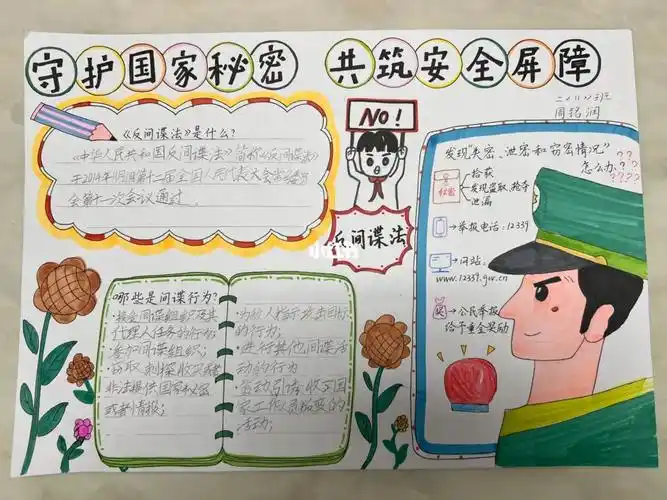 守护国家秘密 共筑安全屏障
二2112班
周铭润
《反间谍法》是什么?
《中华人民共和国反间谍法》简称《反间谍法》
于2014年11月1日第十二届全国人民代表大会常委
会第十一次会议通过
NO!
反间谍法
小红书
发现"失密、泄密和窃密情况"
怎么办???
????
秘密
拾获
发现盗取、抢夺
泄漏
举报电话:12339
网站:
www.12339.gov.cn
奖
公民举报
给予重金奖励
哪些是间谍行为?
·接受间谍组织及其
代理人任务的行为
·参加间谍组织;
·窃取、刺探、收买
非法提供国家秘密
或者情报;
·为敌人指示攻击目标
的行为;
·进行其他间谍活
动的行为
·策动、引诱、收买国
家工作人员叛变的
活动;